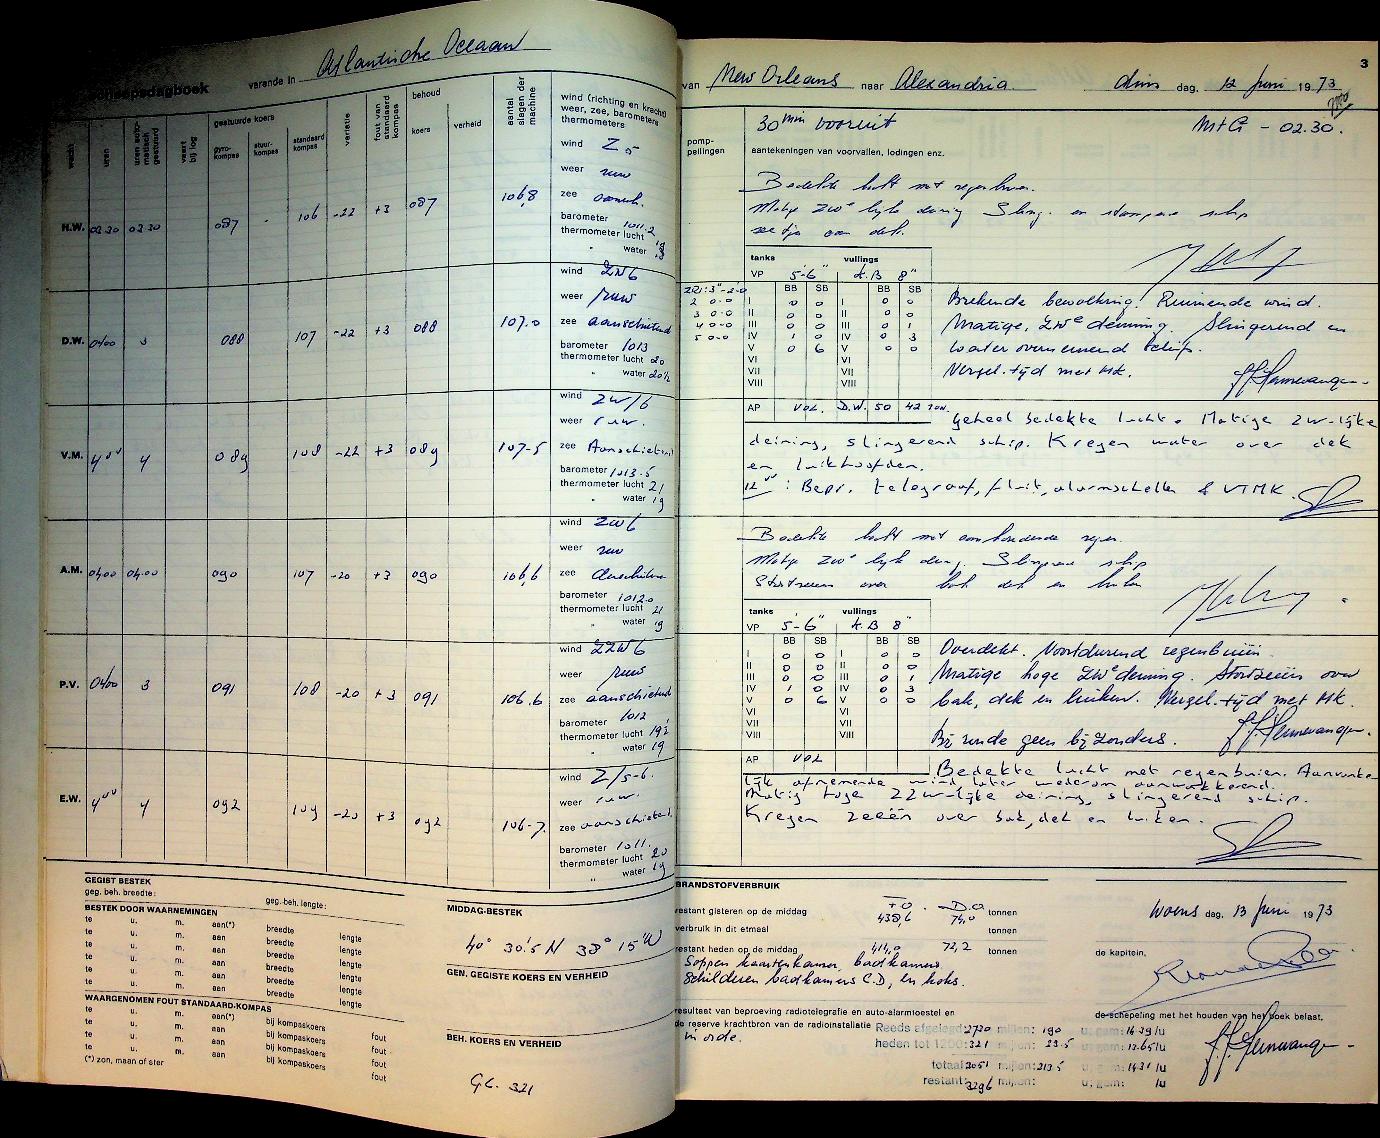 scheepsdagboek varende in Atlantische Oceaan
wacht uren uren auto-matisch gestuurd vaart bij log gestuurde koers gyro-kompas stuur-kompas standaard kompas variatie fout van standaard kompas behoud koers verheid aantal slagen der machine wind (richting en kracht) weer, zee, barometers thermometers
H.W. 02.30 02.30 087 - 106 -22 +3 087 106,8
wind Z 5
weer ruw
zee
barometer 1011.2
thermometer lucht 19
" water
D.W. 0400 3 088 107 -22 +3 088 107.0
wind ZW6
weer ruw
zee aanschietend
barometer 1013
thermometer lucht 20
" water 20½
V.M. 4⁰⁰ 4 089 108 -22 +3 089 107-5
wind ZW/6
weer ruw.
zee Aanschietend
barometer 1013-5
thermometer lucht 21
" water 19
A.M. 04.00 04.00 090 107 -20 +3 090 106,6
wind ZW6
weer ruw
zee
barometer 1012.0
thermometer lucht 21
" water 19
P.V. 0400 3 091 108 -20 +3 091 106.6
wind ZZW6
weer ruw
zee aanschietend
barometer 1012
thermometer lucht 19½
" water 19
E.W. 4⁰⁰ 4 092 109 -20 +3 092 106-7
wind Z/5-6.
weer ruw.
zee aanschietend.
barometer 1011.
thermometer lucht 20
" water 19
GEGIST BESTEK
geg. beh. breedte: geg. beh. lengte:
BESTEK DOOR WAARNEMINGEN
te u. m. aan(*) breedte lengte
te u. m. aan breedte lengte
te u. m. aan breedte lengte
te u. m. aan breedte lengte
te u. m. aan breedte lengte
te u. m. aan breedte lengte
WAARGENOMEN FOUT STANDAARD-KOMPAS
te u. m. aan(*) bij kompaskoers fout
te u. m. aan bij kompaskoers fout
te u. m. aan bij kompaskoers fout
te u. m. aan bij kompaskoers fout
(*) zon, maan of ster
MIDDAG-BESTEK
40° 30'.5 N 38° 15' W
GEN. GEGISTE KOERS EN VERHEID
BEH. KOERS EN VERHEID
GC. 321
3
van New Orleans naar Alexandria. dins dag. 12 Juni 1973
pomp-peilingen
30min vooruit MtG - 02.30.
aantekeningen van voorvallen, lodingen enz.
Bedekte lucht met regenbuien.
Matige ZWe lijke deining. Sling. en stampend schip
zeetje aan dek.
tanks vullings
VP 5-6" A.B 8"
BB SB BB SB
I 0 0 I 0 0
II 0 0 II 0 0
III 0 0 III 0 1
IV 1 0 IV 0 3
V 0 6 V 0 0
VI VI
VII VII
VIII VIII
2 0-0
3 0-0
4 0-0
5 0-0
Brekende bewolking. Ruimende wind.
Matige, ZWe deining. Slingerend en
water overnemend schip.
Vergel. tijd met MK.
AP VOL. D.W. 50 42 TON.
Geheel bedekte lucht. Matige ZW-lijke
deining, slingerend schip. Kregen water over dek
en luikhoofden.
12⁰⁰: Bepr. telegraaf, fluit, alarmschellen & VTMK.
Bedekte lucht met aanhoudende regen.
Matige ZWe lijke deining. Slingerend schip
Stortzeeen over bak dek en luiken
tanks vullings
VP 5-6" A.B 8"
BB SB BB SB
I 0 0 I 0 0
II 0 0 II 0 0
III 0 0 III 0 1
IV 1 0 IV 0 3
V 0 6 V 0 0
VI VI
VII VII
VIII VIII
Overdekt. Voortdurend regenbuiën.
Matige hoge ZWe deining. Stortzeeën over
bak, dek en luiken. Vergel. tijd met MK.
Bij ronde geen bijzonders.
AP VOL
Bedekte lucht met regenbuien. Aanvanke-
lijk afnemende wind later wederom aanwakkerend.
Matig hoge ZZW-lijke deining, slingerend schip.
Kregen zeeën over bak, dek en luiken.
BRANDSTOFVERBRUIK
F.O. D.O.
restant gisteren op de middag 438,6 74,0 tonnen
verbruik in dit etmaal tonnen
restant heden op de middag 414,0 72,2 tonnen
Soppen kaartenkamer, badkamers
Schilderen badkamers C.D, en hoks.
resultaat van beproeving radiotelegrafie en auto-alarmtoestel en
de reserve krachtbron van de radioinstallatie
in orde.
Reeds afgelegd: 2730 mijlen: 190 u; gem: 14.39/u
heden tot 1200: 321 mijlen: 23.5 u; gem: 13.65/u
totaal: 3051 mijlen: 213.5 u; gem: 14.31/u
restant: 3296 mijlen: u; gem: /u
Woens dag. 13 Juni 1973
de kapitein,
de schepeling met het houden van het boek belast,